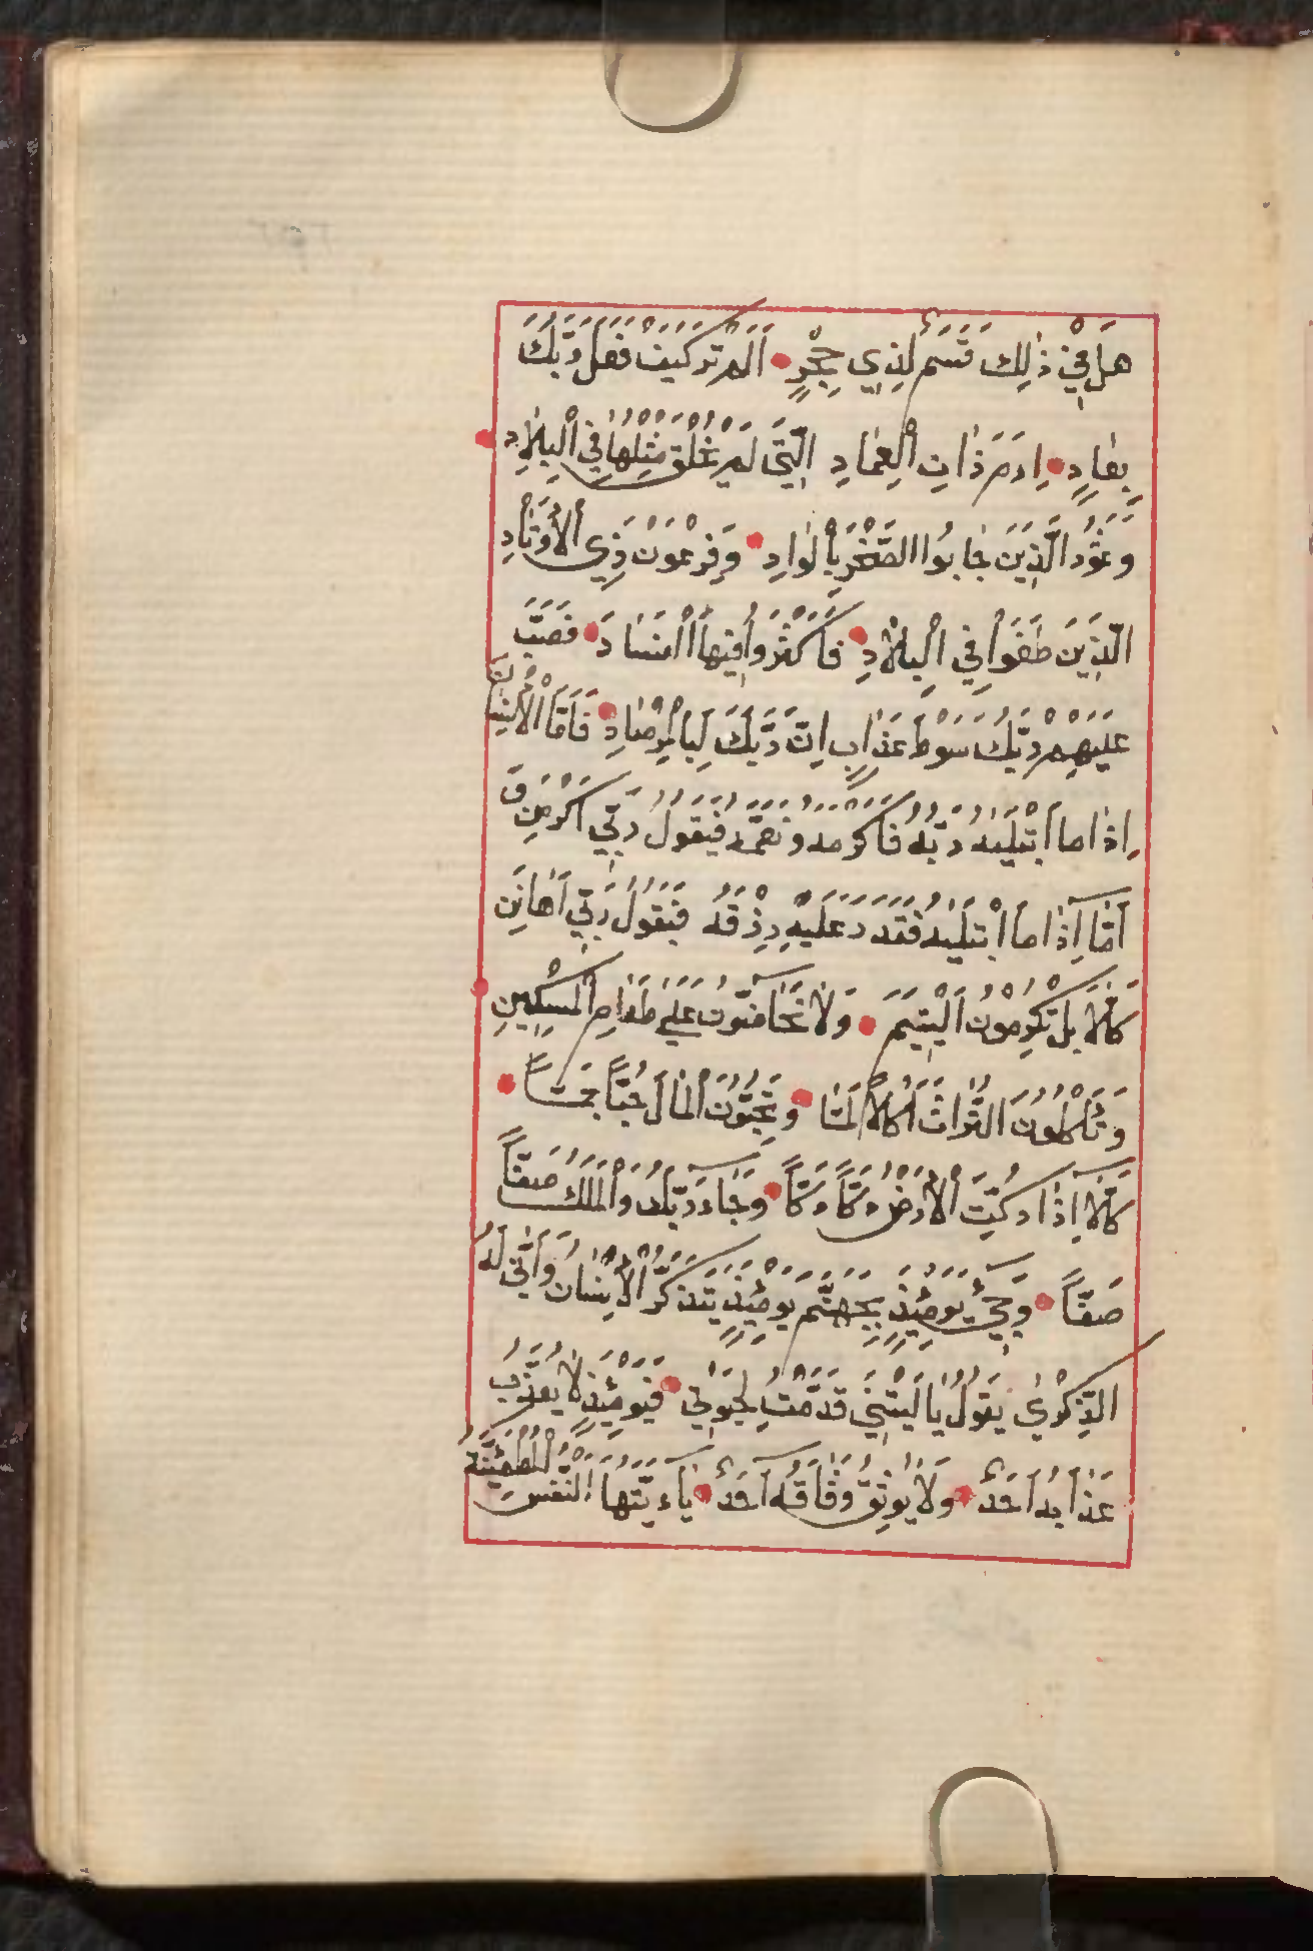 هَلْ فِيْ ذٰلِكَ قَسَمٌ لِذِي حِجْرٍ اَلَمْ تَرَ كَيْفَ فَعَلَ رَبُّكَ
بِعٰادٍ اِرَمَ ذٰاتِ الْعِمٰادِ الَّتِيْ لَمْ يُخْلَقْ مِثْلُهٰا فِي الْبِلٰادِ
وَثَمُوْدَ الَّذِيْنَ جٰابُوا الصَّخْرَ بِالْوٰادِ وَفِرْعَوْنَ ذِي الْأَوْتٰادِ
الَّذِيْنَ طَغَوْا فِي الْبِلٰادِ فَاَكْثَرُوْا فِيْهَا الْفَسٰادَ فَصَبَّ
عَلَيْهِمْ رَبُّكَ سَوْطَ عَذٰابٍ اِنَّ رَبَّكَ لَبِالْمِرْصٰادِ فَاَمَّا الْاِنْسٰانُ
اِذٰا مٰا ابْتَلَيٰهُ رَبُّهُ فَاَكْرَمَهُ وَنَعَّمَهُ فَيَقُوْلُ رَبِّيْ اَكْرَمَنِ وَ
اَمَّآ اِذٰا مَا ابْتَلَيٰهُ فَقَدَرَ عَلَيْهِ رِزْقَهُ فَيَقُوْلُ رَبِّيْ اَهٰانَنِ
كَلّٰا بَلْ تُكْرِمُوْنَ الْيَتِيْمَ وَلٰا تَحٰآضُّوْنَ عَلٰى طَعٰامِ الْمِسْكِيْنِ
وَتَأْكُلُوْنَ التُّرٰاثَ اَكْلًا لَمًّا وَتُحِبُّوْنَ الْمٰالَ حُبًّا جَمًّا
كَلّٰآ اِذٰا دُكَّتِ الْأَرْضُ دَكًّا دَكًّا وَجٰآءَ رَبُّكَ وَالْمَلَكُ صَفًّا
صَفًّا وَجِيْءَ يَوْمَئِذٍ بِجَهَنَّمَ يَوْمَئِذٍ يَتَذَكَّرُ الْاِنْسٰانُ وَاَنّٰى لَهُ
الذِّكْرٰى يَقُوْلُ يٰا لَيْتَنِيْ قَدَّمْتُ لِحَيٰوتِيْ فَيَوْمَئِذٍ لٰا يُعَذِّبُ
عَذٰابَهُ اَحَدٌ وَلٰا يُوْثِقُ وَثٰاقَهُ اَحَدٌ يٰآءَيَّتُهَا النَّفْسُ الْمُطْمَئِنَّةُ